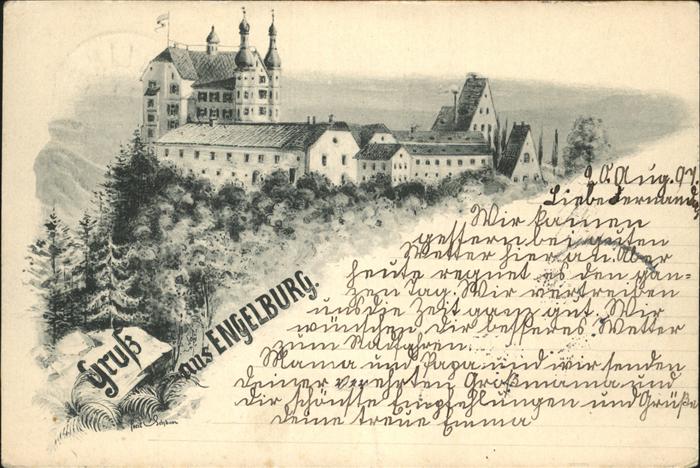 Aug. 97.
Wir kamen
gestern bei guten
Wetter hier an. Aber
heute regnet es den gan-
zen Tag. Wir vertreiben
uns die Zeit ganz gut. Wir
wünschen dir besseres Wetter
zum Radfahren.
Mama und Papa und wir senden
deiner verehrten Großmama und
dir schönste Empfehlungen und Grüße
deine treue Emma
Gruß
aus ENGELBURG.